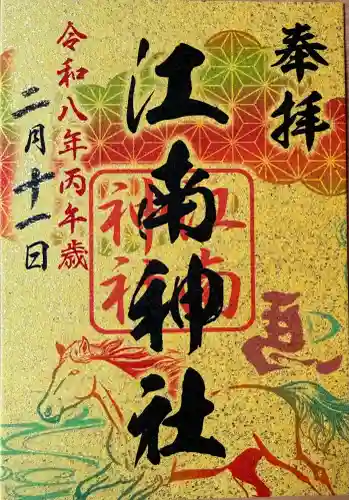 奉拝
江南神社
江南
神社
令和八年丙午歳
二月十一日